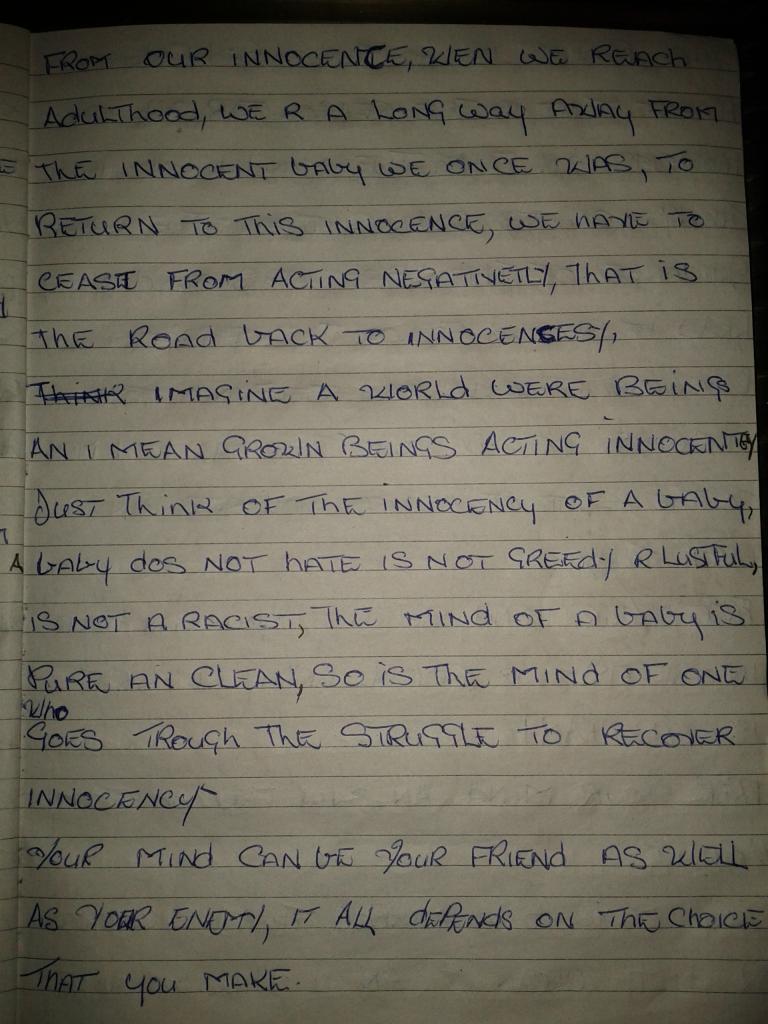 FROM OUR INNOCENCE, WEN WE REACH
AdulTHood, WE R A LONG WAY AWAY FROM
THE INNOCENT bAby WE ONCE WAS, TO
RETURN TO THIS INNOCENCE, WE HAVE TO
CEASE FROM ACTING NEGATIVETLY, THAT IS
THE ROAD bACK TO INNOCENSES,
THINK IMAGINE A WORLD WERE BEINGS
AN I MEAN GROWN BEINGS ACTING INNOCENTEY
JUST THINK OF THE INNOCENCY OF A bAby,
A bAby dOS NOT HATE IS NOT GREEDY R LUSTFUL,
IS NOT A RACIST, THE MIND OF A bAby IS
PURE AN CLEAN, SO IS THE MIND OF ONE
WHO
GOES TROUGH THE STRUGGLE TO RECOVER
INNOCENCY
YOUR MIND CAN bE YOUR FRIEND AS WELL
AS YOUR ENEMY, IT ALL dEPENDS ON THE CHOICE
THAT YOU MAKE.